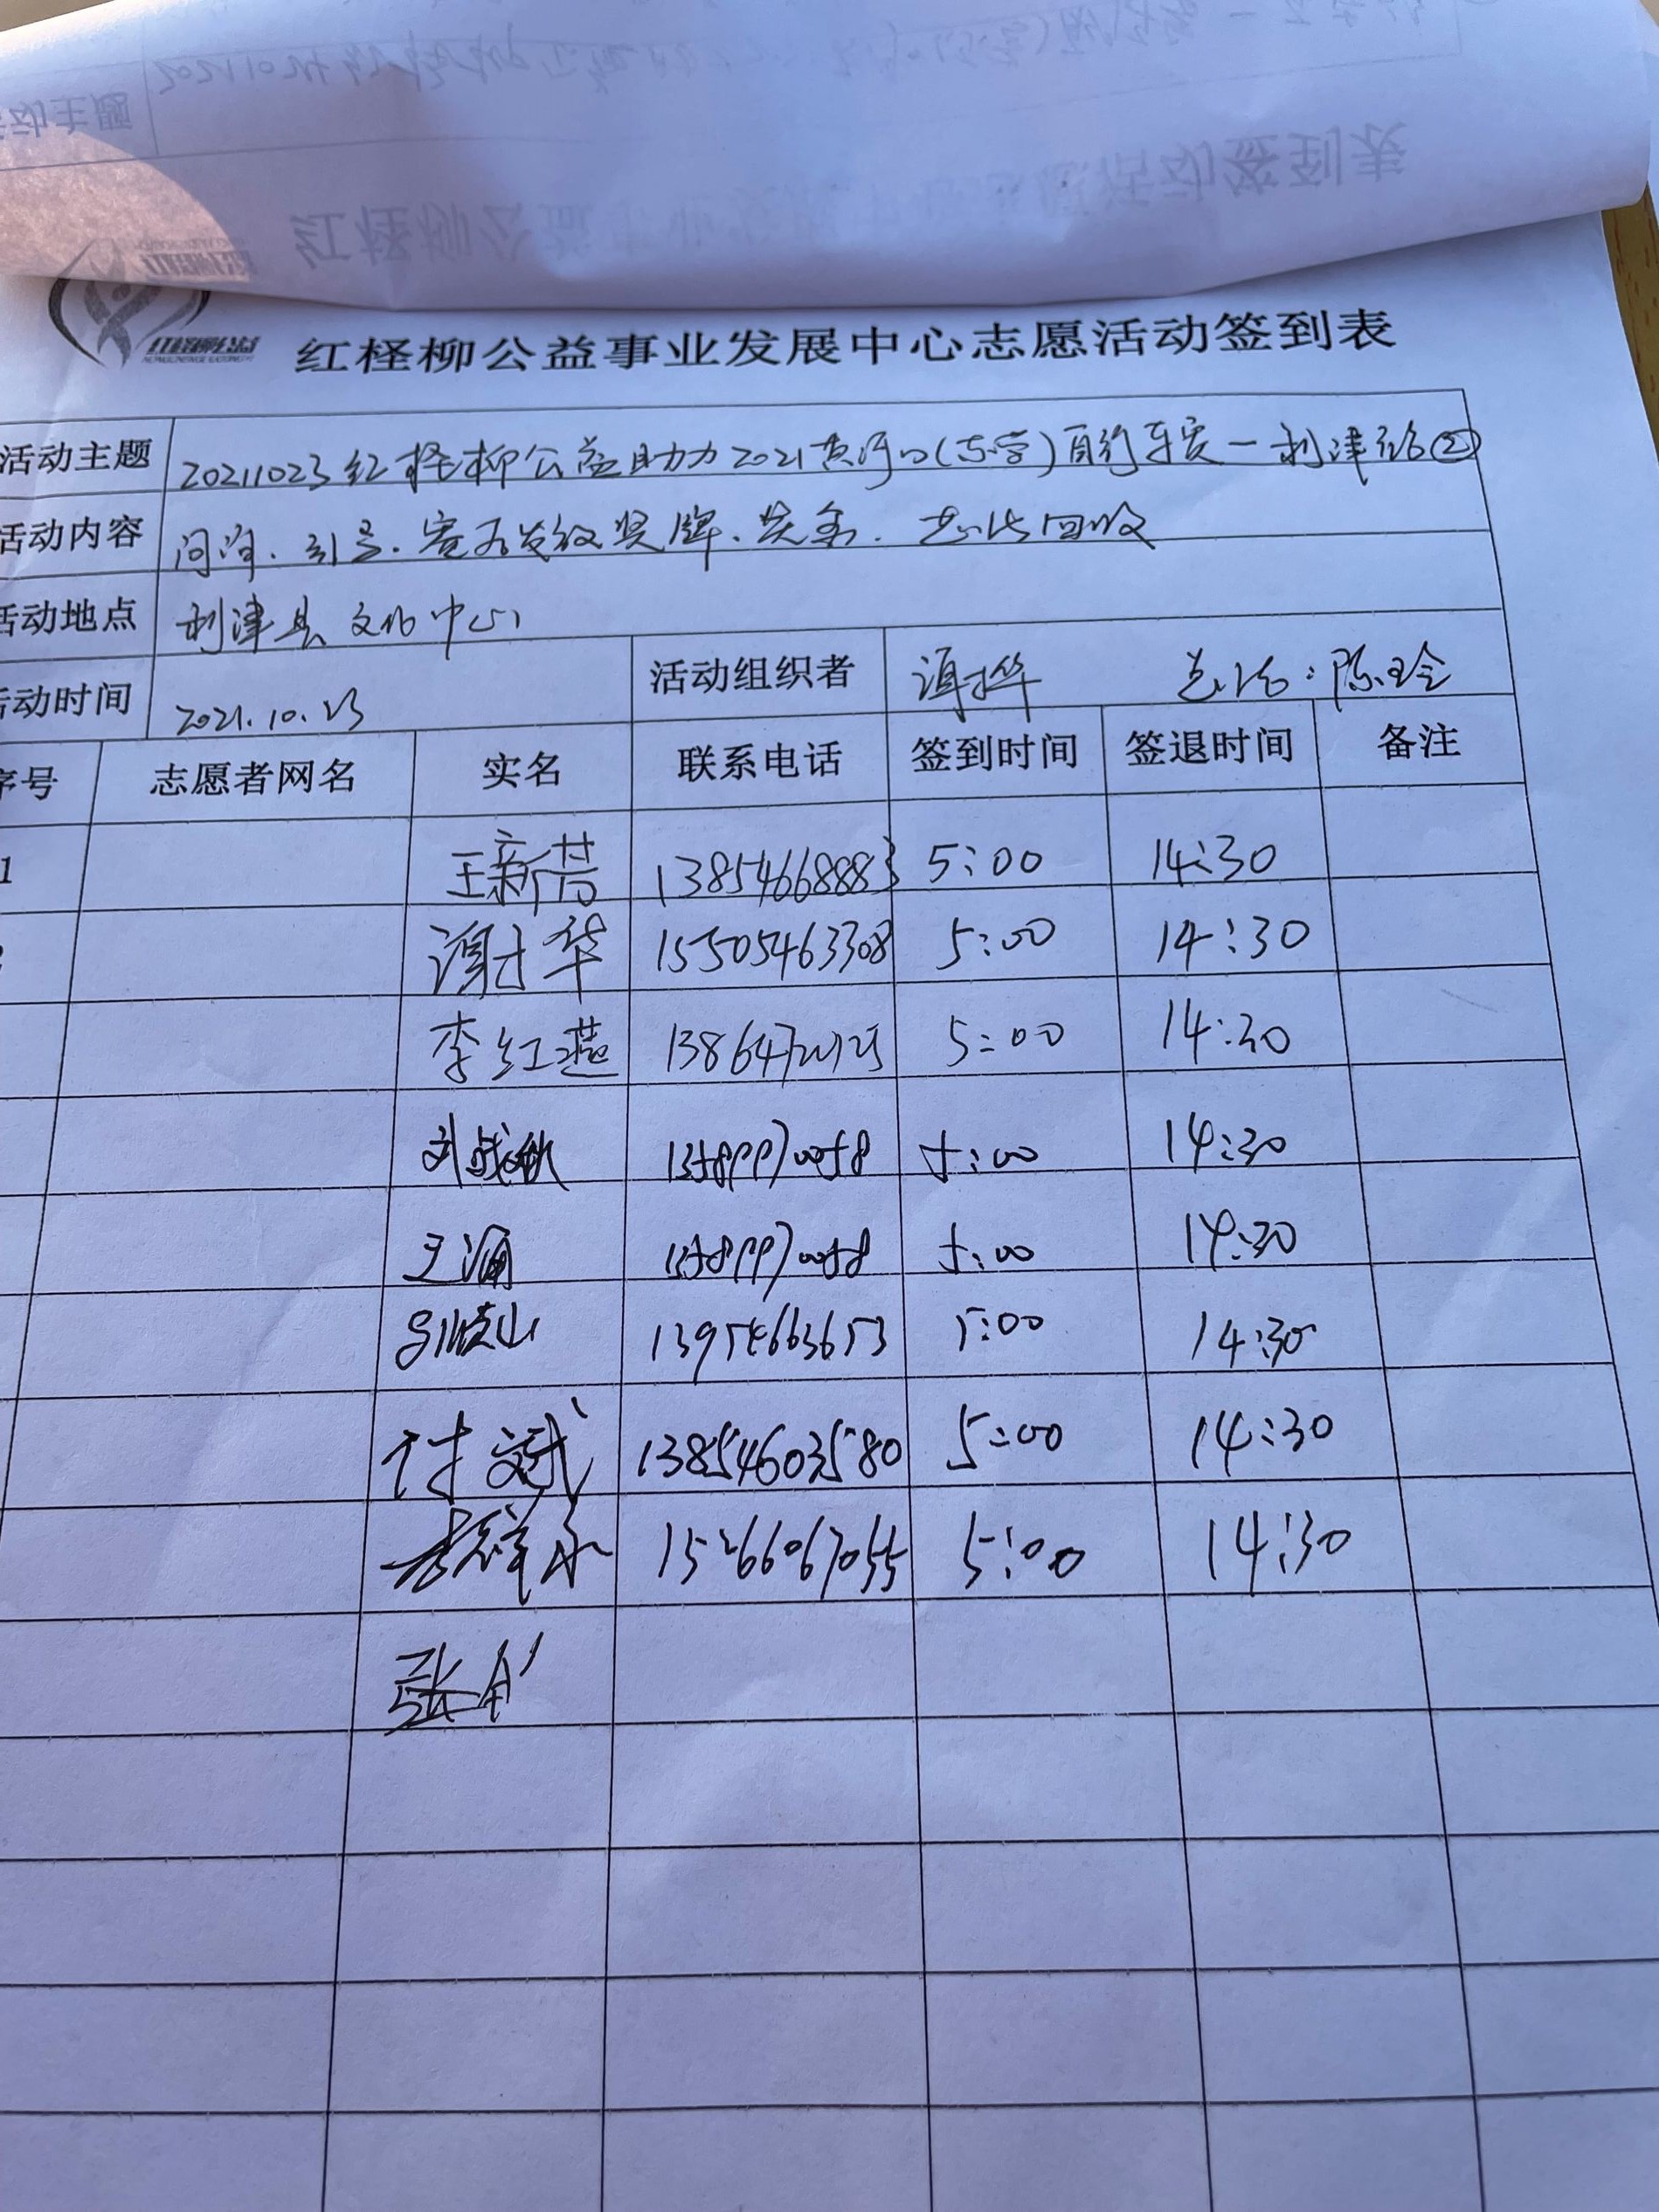 红柽柳公益事业发展中心志愿活动签到表
活动主题 20211023红柽柳公益助力2021黄河口(东营)自行车赛一利津站②
活动内容 问询、引导、赛后发放奖牌、芯片回收
活动地点 利津县文化中心
活动时间 2021.10.23 活动组织者 总结:陈玉玲
序号 志愿者网名 实名 联系电话 签到时间 签退时间 备注
1 王新芳 13854668883 5:00 14:30
谢士华 15505463308 5:00 14:30
李红燕 5:00 14:30
刘战 5:00 14:30
王涌 5:00 14:30
13954663653 5:00 14:30
付文武 13854603580 5:00 14:30
李祥永 15266067055 5:00 14:30
张